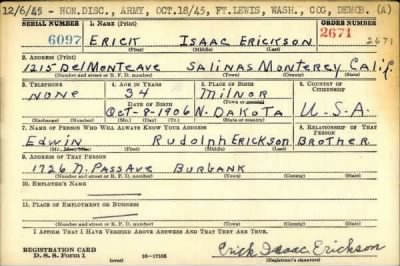 12/6/45 - HON.DISC., ARMY, OCT.18/45, FT.LEWIS, WASH., COG, DEMOB. (A)
SERIAL NUMBER 1. NAME (Print) ORDER NUMBER
6097 ERICK ISAAC ERICKSON 2671 2671
(First) (Middle) (Last)
2. ADDRESS (Print)
1215 DelMonteave SALINAS Monterey Calif.
(Number and street or R. F. D. number) (Town) (County) (State)
3. TELEPHONE 4. AGE IN YEARS 5. PLACE OF BIRTH 6. COUNTRY OF CITIZENSHIP
none 34 Milnor
DATE OF BIRTH (Town or county)
Oct-9-1906 N. DAKOTA U.S.A.
(Exchange) (No.) (Mo.) (Day) (Yr.) (State or country)
7. NAME OF PERSON WHO WILL ALWAYS KNOW YOUR ADDRESS 8. RELATIONSHIP OF THAT PERSON
Edwin Rudolph Erickson Brother
(Mr., Mrs., Miss) (First) (Middle) (Last)
9. ADDRESS OF THAT PERSON
1726 N. Pass Ave Burbank
(Number and street or R. F. D. number) (Town) (County) (State)
10. EMPLOYER'S NAME
11. PLACE OF EMPLOYMENT OR BUSINESS
(Number and street or R. F. D. number) (Town) (County) (State)
I AFFIRM THAT I HAVE VERIFIED ABOVE ANSWERS AND THAT THEY ARE TRUE.
REGISTRATION CARD
D. S. S. Form 1 16-17105 Erick Isaac Erickson
(Registrant's signature)